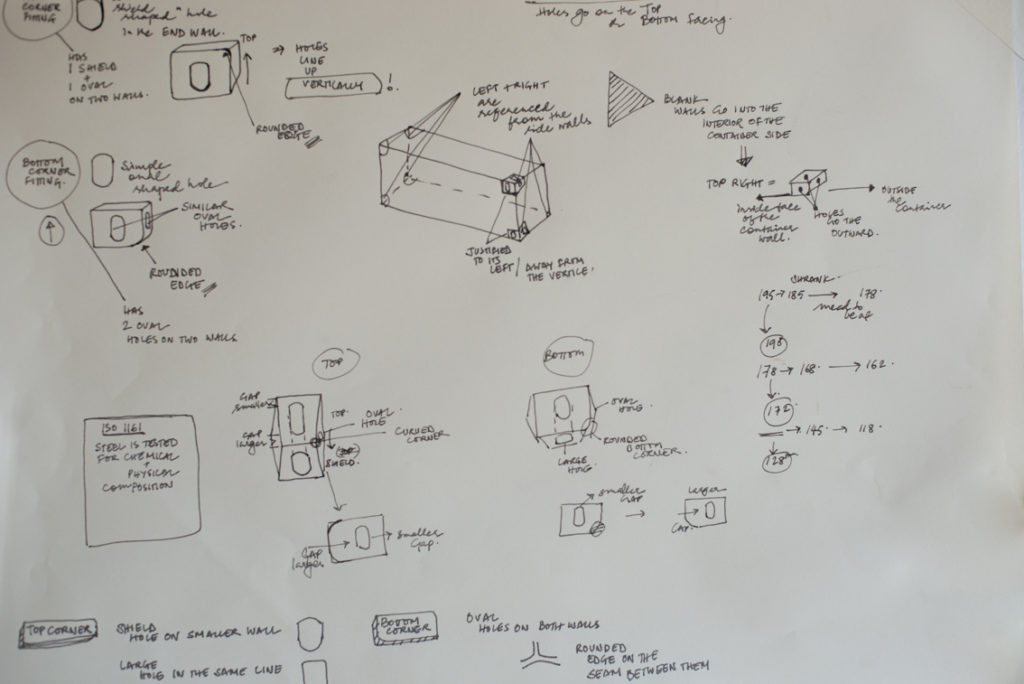 CORNER
FITTING
"shield
shaped" hole
In the END WALL.
HAS
1 SHIELD
+
1 OVAL
ON TWO WALLS.
TOP
⇒ HOLES
LINE
UP
VERTICALLY !
ROUNDED
EDGE
Holes go on the Top
or Bottom facing.
LEFT + RIGHT
are
referenced
from the
side walls
BLANK
WALLS GO INTO THE
INTERIOR OF THE
CONTAINER SIDE
TOP RIGHT =
OUTSIDE
the
container
inside face
of the
container
wall.
HOLES
GO THE
OUTWARD.
JUSTIFIED
TO ITS
LEFT / AWAY FROM
THE VERTICE.
BOTTOM
CORNER
FITTING.
Simple
oval
shaped hole
SIMILAR
OVAL
HOLES.
ROUNDED
EDGE
HAS
2 OVAL
HOLES ON TWO WALLS
SHRANK
195 → 185 → 178
need to
be at
198
178 → 168 → 162.
172
→ 145 → 118
128
TOP
GAP
smaller
GAP
larger
TOP
OVAL
HOLE
CURVED
CORNER
SHIELD.
GAP
larger
Smaller
Gap.
BOTTOM
OVAL
HOLE.
ROUNDED
BOTTOM
CORNER.
LARGE
HOLE.
smaller
GAP
larger
GAP.
ISO 1161
STEEL IS TESTED
FOR CHEMICAL
+
PHYSICAL
COMPOSITION
TOP CORNER
SHIELD
HOLE ON SMALLER WALL
LARGE
HOLE IN THE SAME LINE
BOTTOM
CORNER
OVAL
HOLES ON BOTH WALLS
ROUNDED
EDGE ON THE
SEAM BETWEEN THEM